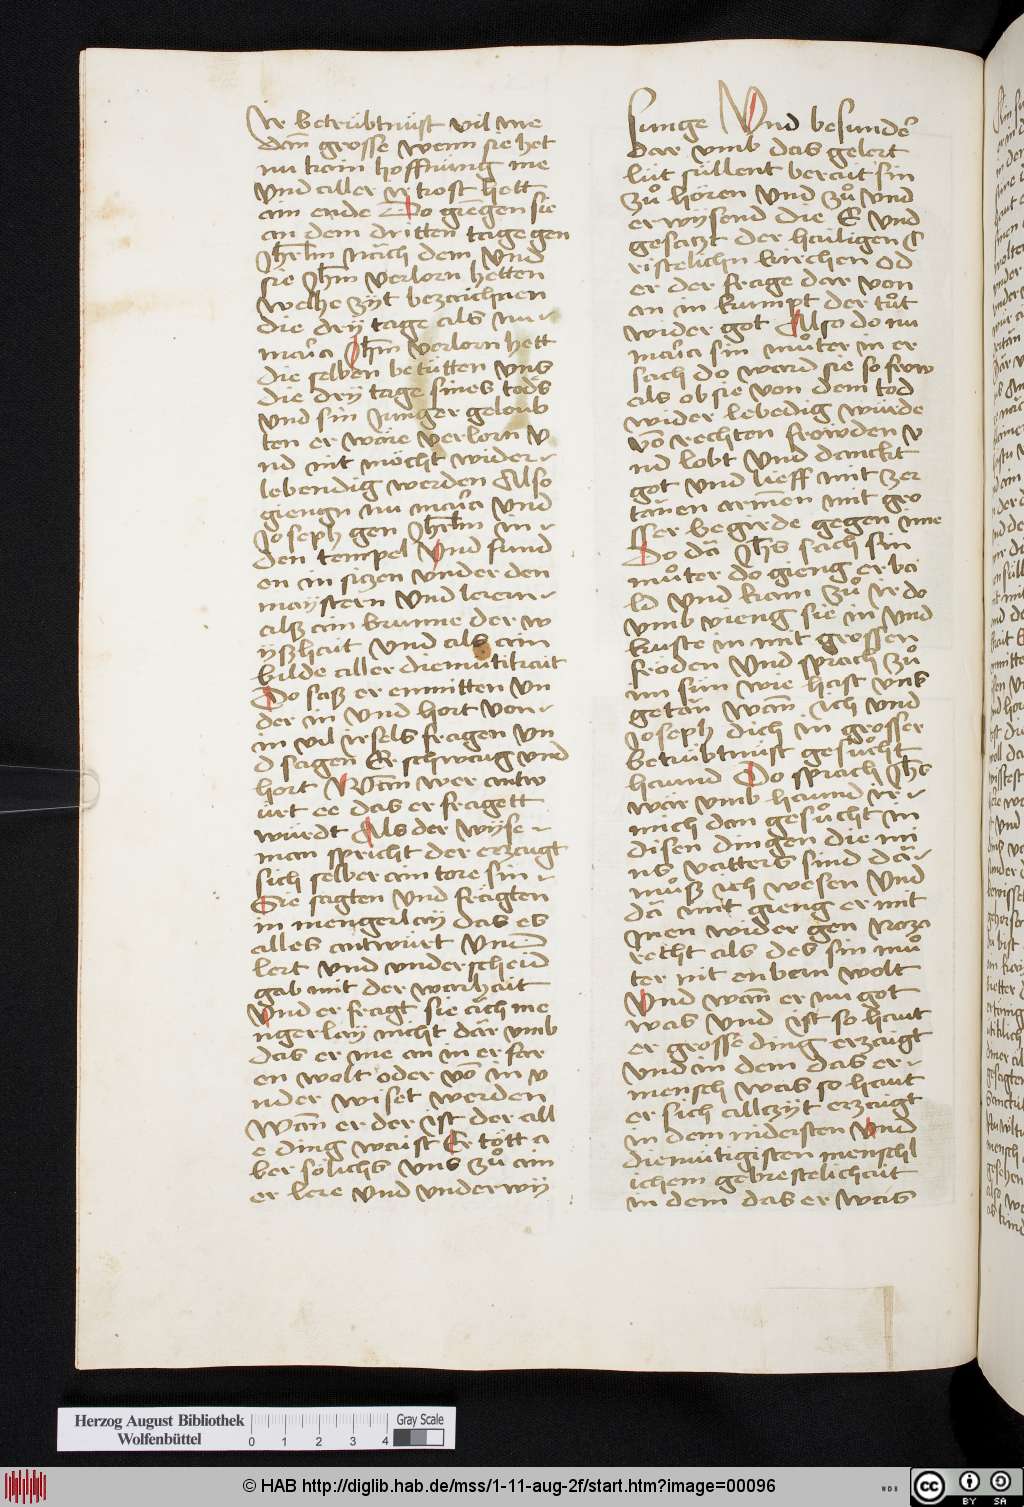 Ir betrübtnüst vil me
dañ grosse wenn sie het
nu kain hoffnüng me
vnd aller ir trost hett
ain ende Do giengen sie
an dem dritten tage gen
Jhrl̄m nāch dem vnd
sie Jhm̄ verlorn hetten
welhe zyt bezaichnen
die dry tage als nu-
maria Jhm̄ verlorn hett
die selben betütten vns
die dry tage sines tods
vnd sin Junger geloub
ten er wäre verlorn v
nd nit möcht wider-
lebendig werden Also
giengn nu maria vnd
Joseph gen Jhrl̄m in-
den tempel Vnd fund
en in siczen vnder den
maystern vnd leiern-
alß ain brunne der w
yßhait vnd als ain
bilde aller diemütikait
Do saß er enmitten vn
der in vnd hort von-
in vil irsels fragen vn
d sagen Er schwaug vnd
hort Wañ wer antw
ürt ee das er fragett
würdt Als der wyse-
man spricht der erzaugt
sich selber ain tore sin-
Sie sagten vnd frägten
in mengerlay das es
alles antwürt Vnd
lert vnd vnderscheid
gab mit der warhait
Vnd er fragt sie ăch me
ngerlay nicht där vmb
das er me an in erfar
en wolt oder vō in v
nder wiset werden
Wañ er der ist der all
e ding waist Er tött a
ber sölichs vns zů ain
er lere vnd vnderwy
sunge Vnd besunder
dar vmb das gelert
lüt süllent berait sin
zů hören vnd zů vnd
erwysend die E vnd
gesaczt der hailigen C
ristelichn kirchen Od
er der frage dar von
an in kumpt der tůt
wider got Also do nu
maria sin můter in er
sach do ward sie so frow
als ob sie von dem tod
wider lebedig würde
vō rechten fröwden v
nd lobt vnd danckt
got vnd lieff mit zer
tanen armen mit gro
sser begirde gegen ime
Do dā Jhs sach sin
můter do gieng er ba
ld vnd kam zů ir do
vmb vieng sie in vnd
kuste in mit grossen
fröden vnd sprach zů
im sün wie hast vns
getān wañ ich vnd
Joseph dich in grosser
betrübtnüst gesůcht
haund Do sprach Jhs
wär vmb haund ir-
mich dan gesůcht in
disen dingen die mi
ns vatters sind dā-
můß ich wesen Vnd
dā mit gieng er mit
inen wider gen Naza
recht als des sin mů
ter nit enbern wolt
Vnd wañ er nu got
was vnd ist so haut
er grosse ding erzaugt
vnd in dem das er-
mensch was so haut
er sich allczyt erzaigt
in dem nidersten vnd
diemütigisten menschl
ichem gebrestelichait
in dem das er was
Herzog August Bibliothek
Wolfenbüttel
0 1 2 3 4
Gray Scale
© HAB http://diglib.hab.de/mss/1-11-aug-2f/start.htm?image=00096
WDB
cc BY SA